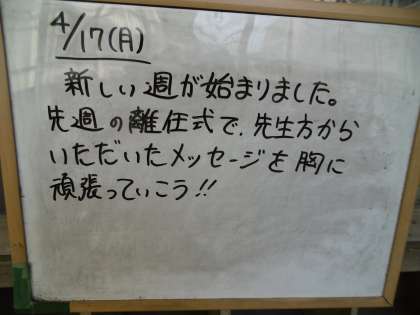 4/17(月)
新しい週が始まりました。
先週の離任式で、先生方から
いただいたメッセージを胸に
頑張っていこう!!